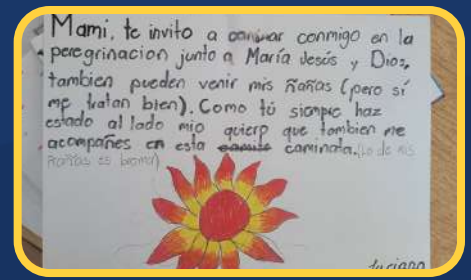 Mami, te invito a caminar conmigo en la
peregrinacion junto a María Jesús y Dios,
tambien pueden venir mis ñañas (pero sí
me tratan bien). Como tú siempre haz
estado al lado mio quiero que tambien me
acompañes en esta caminata. (Lo de mis
ñañas es broma)
Luciano